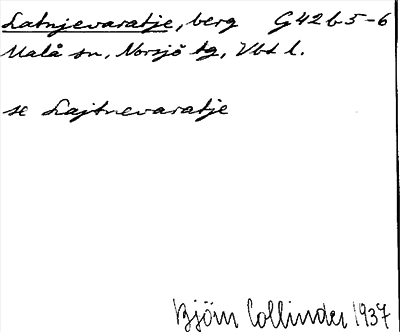 Latnjevaratje, berg G42b5-6
Malå sn, Norsjö tg, Vbt l.
se Lajtnevaratje
Björn Collinder 1937